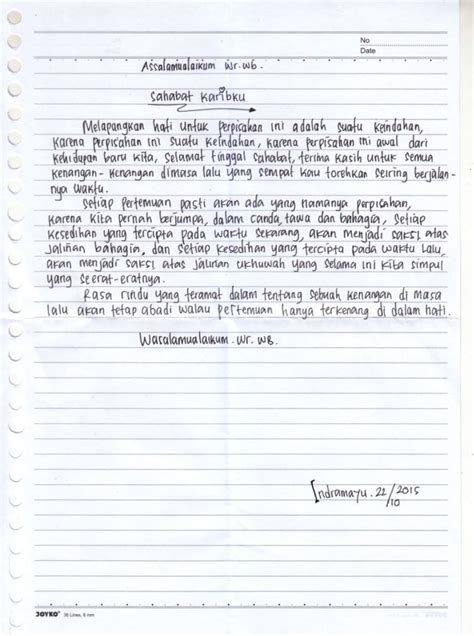 No
Date
Assalamualaikum Wr. Wb.
Sahabat Karibku
Melapangkan hati untuk perpisahan ini adalah suatu keindahan,
karena perpisahan ini suatu keindahan, karena perpisahan ini awal dari
kehidupan baru kita, selamat tinggal sahabat, terima kasih untuk semua
kenangan-kenangan dimasa lalu yang sempat kau torehkan seiring berjalan-
nya waktu.
Setiap pertemuan pasti akan ada yang namanya perpisahan,
karena kita pernah berjumpa, dalam canda, tawa dan bahagia, setiap
kesedihan yang tercipta pada waktu sekarang, akan menjadi saksi atas
jalinan bahagia, dan setiap kesedihan yang tercipta pada waktu lalu,
akan menjadi saksi atas jalinan ukhuwah yang selama ini kita simpul
yang seerat-eratnya.
Rasa rindu yang teramat dalam tentang sebuah kenangan di masa
lalu akan tetap abadi walau pertemuan hanya terkenang di dalam hati.
Wasalamualaikum. Wr. WB.
Indramayu. 21/10 2015
JOYKO 36 Lines, 8 mm